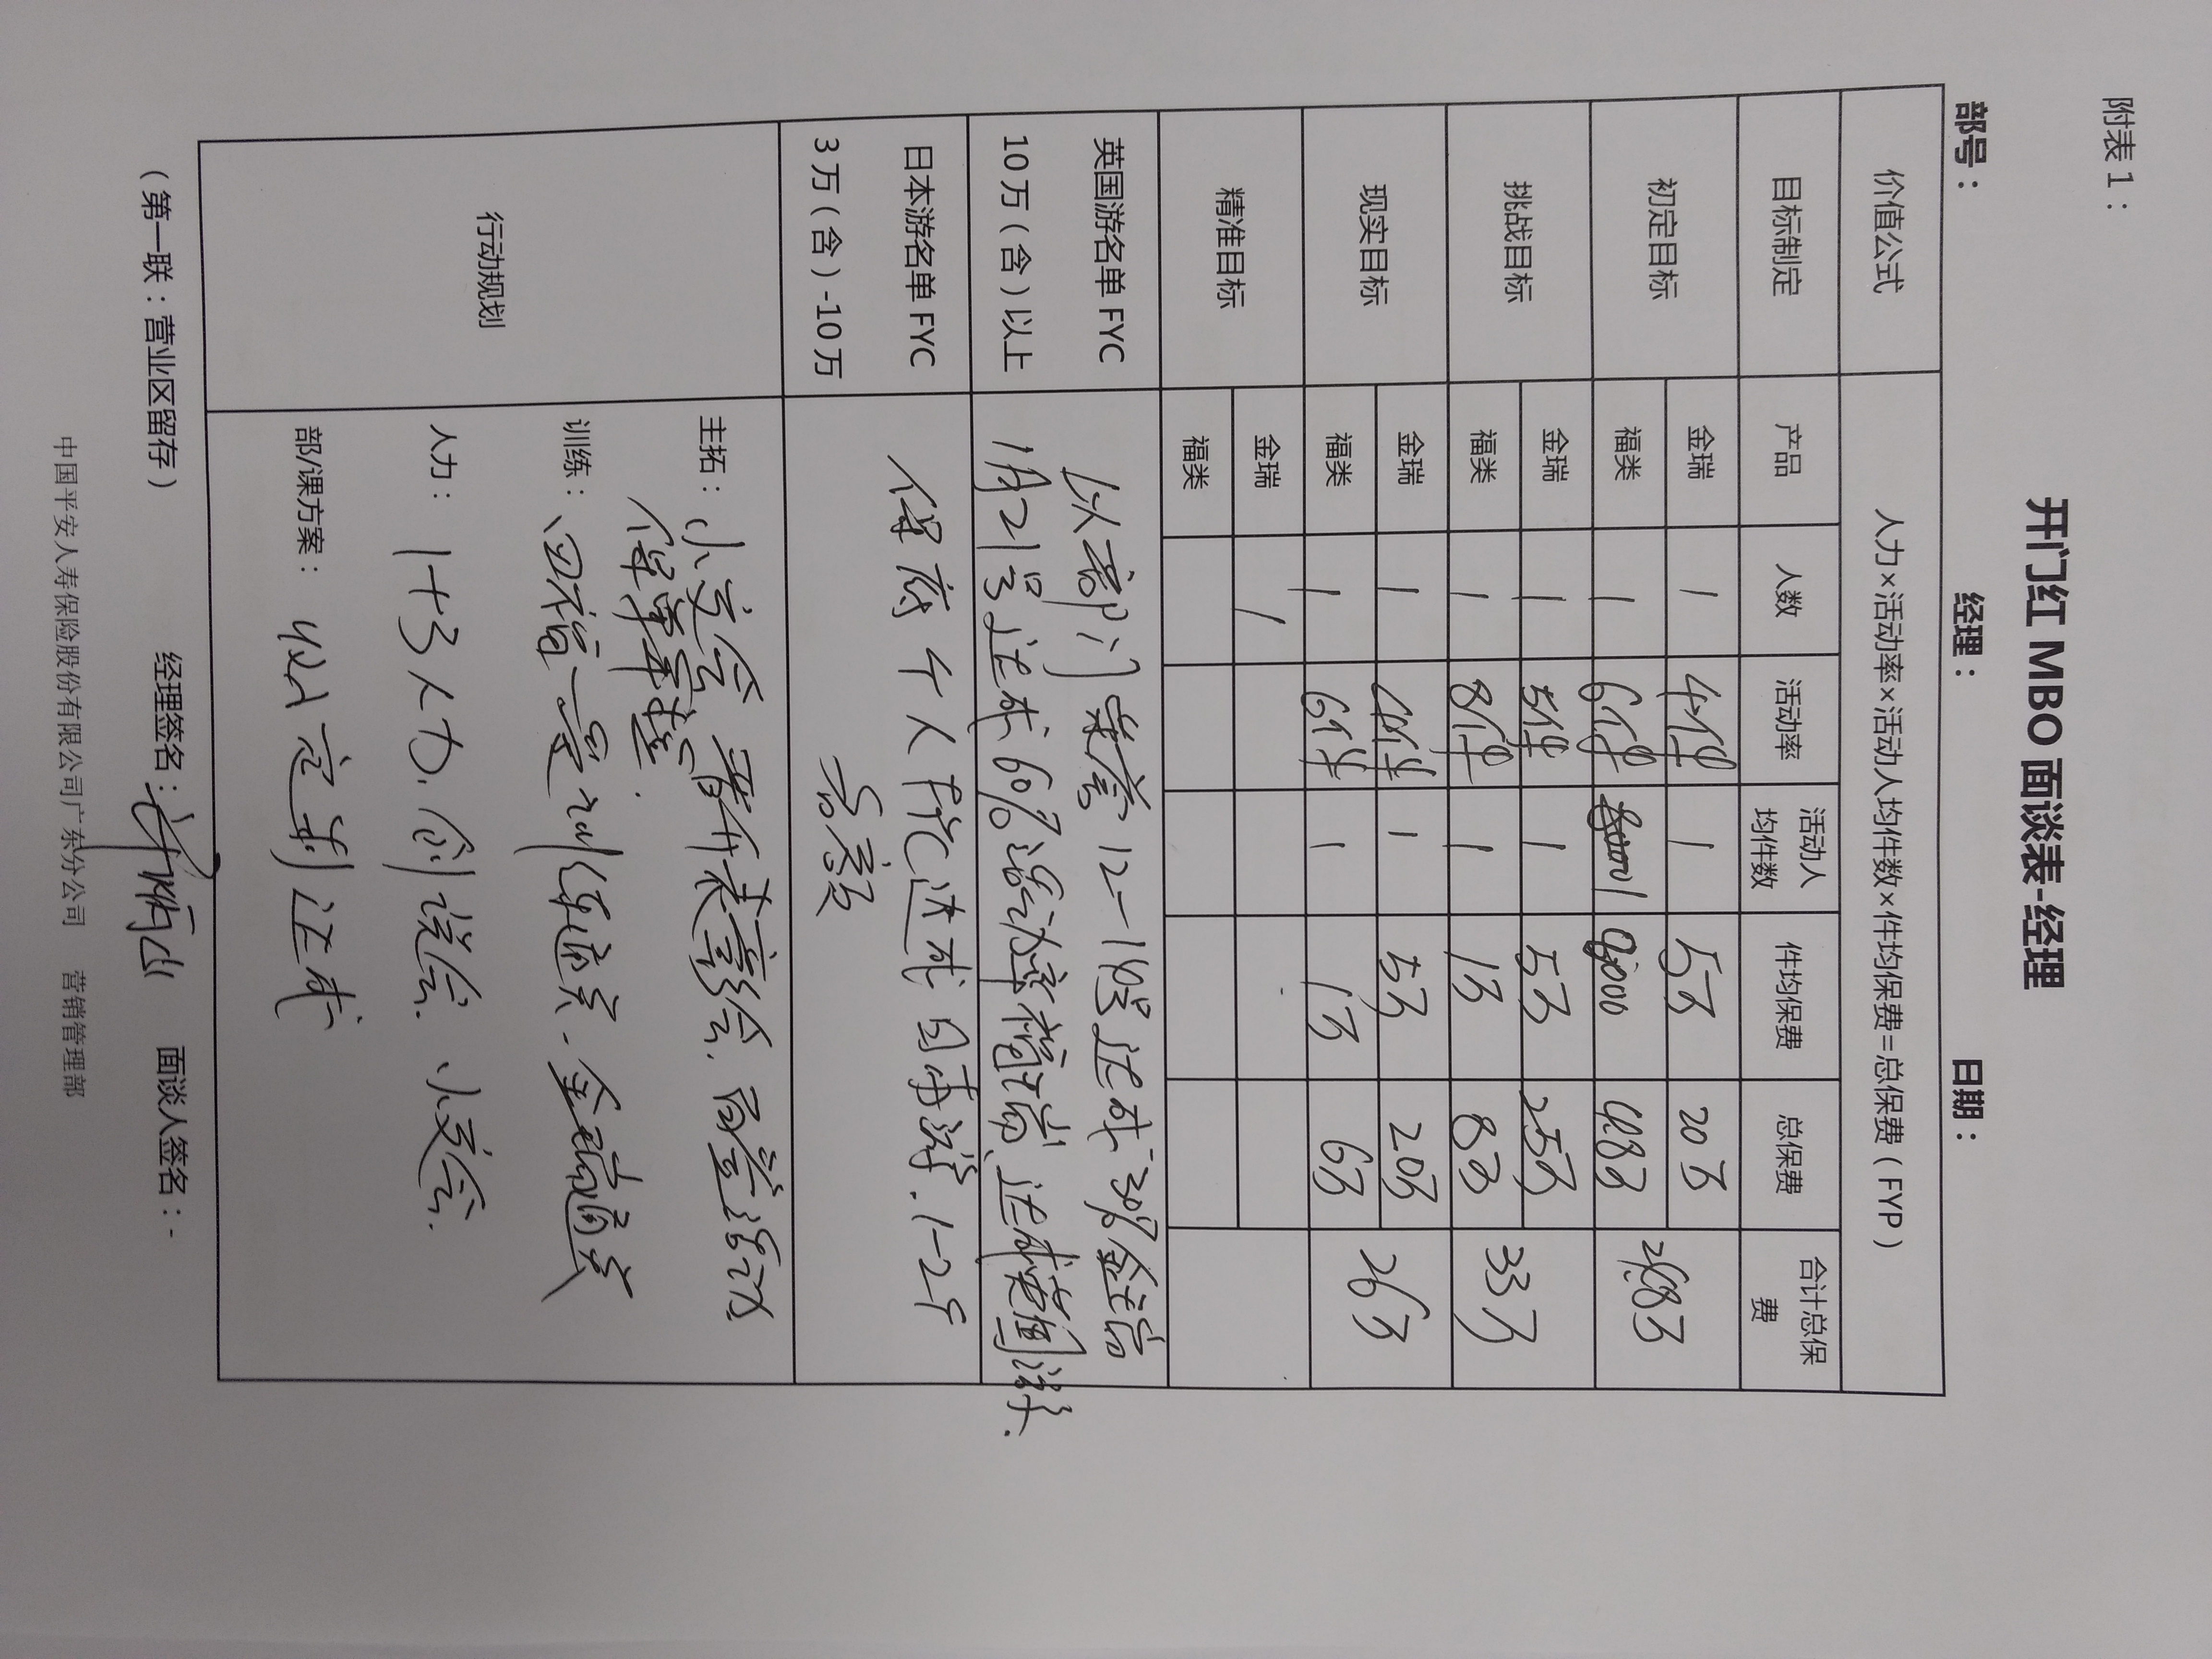 附表1：
开门红 MBO 面谈表-经理
部号： 经理： 日期：
价值公式 人力×活动率×活动人均件数×件均保费=总保费（FYP）
目标制定 产品 人数 活动率 活动人均件数 件均保费 总保费 合计总保费
初定目标 金瑞 1 4件 1 5万 20万
福类 1 6件 1 8000 4.8万 24.8万
挑战目标 金瑞 1 5件 1 5万 25万
福类 1 8件 1 1万 8万 33万
现实目标 金瑞 1 4件 1 5万 20万
福类 1 6件 1 1万 6万 26万
精准目标 金瑞 /
福类
英国游名单 FYC 以部门荣誉 12-1月8号达成30%金
10万（含）以上 1月21号达成60%活动率 达成英国游.
日本游名单 FYC 保底个人FYC达成日本游.1-25
3万（含）-10万 万
行动规划
主拓：小交会 表彰会.
训练： 一星训练通关-金瑞通关
人力：1+3人力.创说会.小交会.
部/课方案：以 定 达成
（第一联：营业区留存） 经理签名： 面谈人签名：-
中国平安人寿保险股份有限公司广东分公司 营销管理部